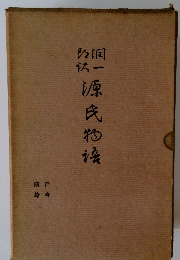 潤一
郎訳
源氏物語